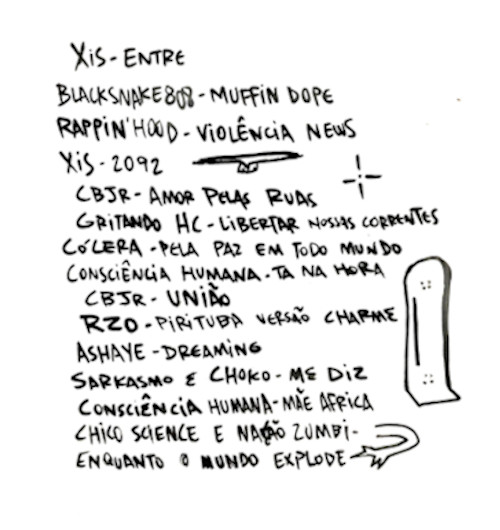 XiS - ENTRE
BLACKSNAKE808 - MUFFIN DOPE
RAPPIN'HOOD - VIOLÊNCIA NEWS
XiS - 2092
CBJR - AMOR PELAS RUAS
GRITANDO HC - LIBERTAR NOSSAS CORRENTES
CÓLERA - PELA PAZ EM TODO MUNDO
CONSCIÊNCIA HUMANA - TA NA HORA
CBJR - UNIÃO
RZO - PIRITUBA VERSÃO CHARME
ASHAYE - DREAMING
SARKASMO E CHOKO - ME DIZ
CONSCIÊNCIA HUMANA - MÃE AFRICA
CHICO SCIENCE E NAÇÃO ZUMBI -
ENQUANTO O MUNDO EXPLODE